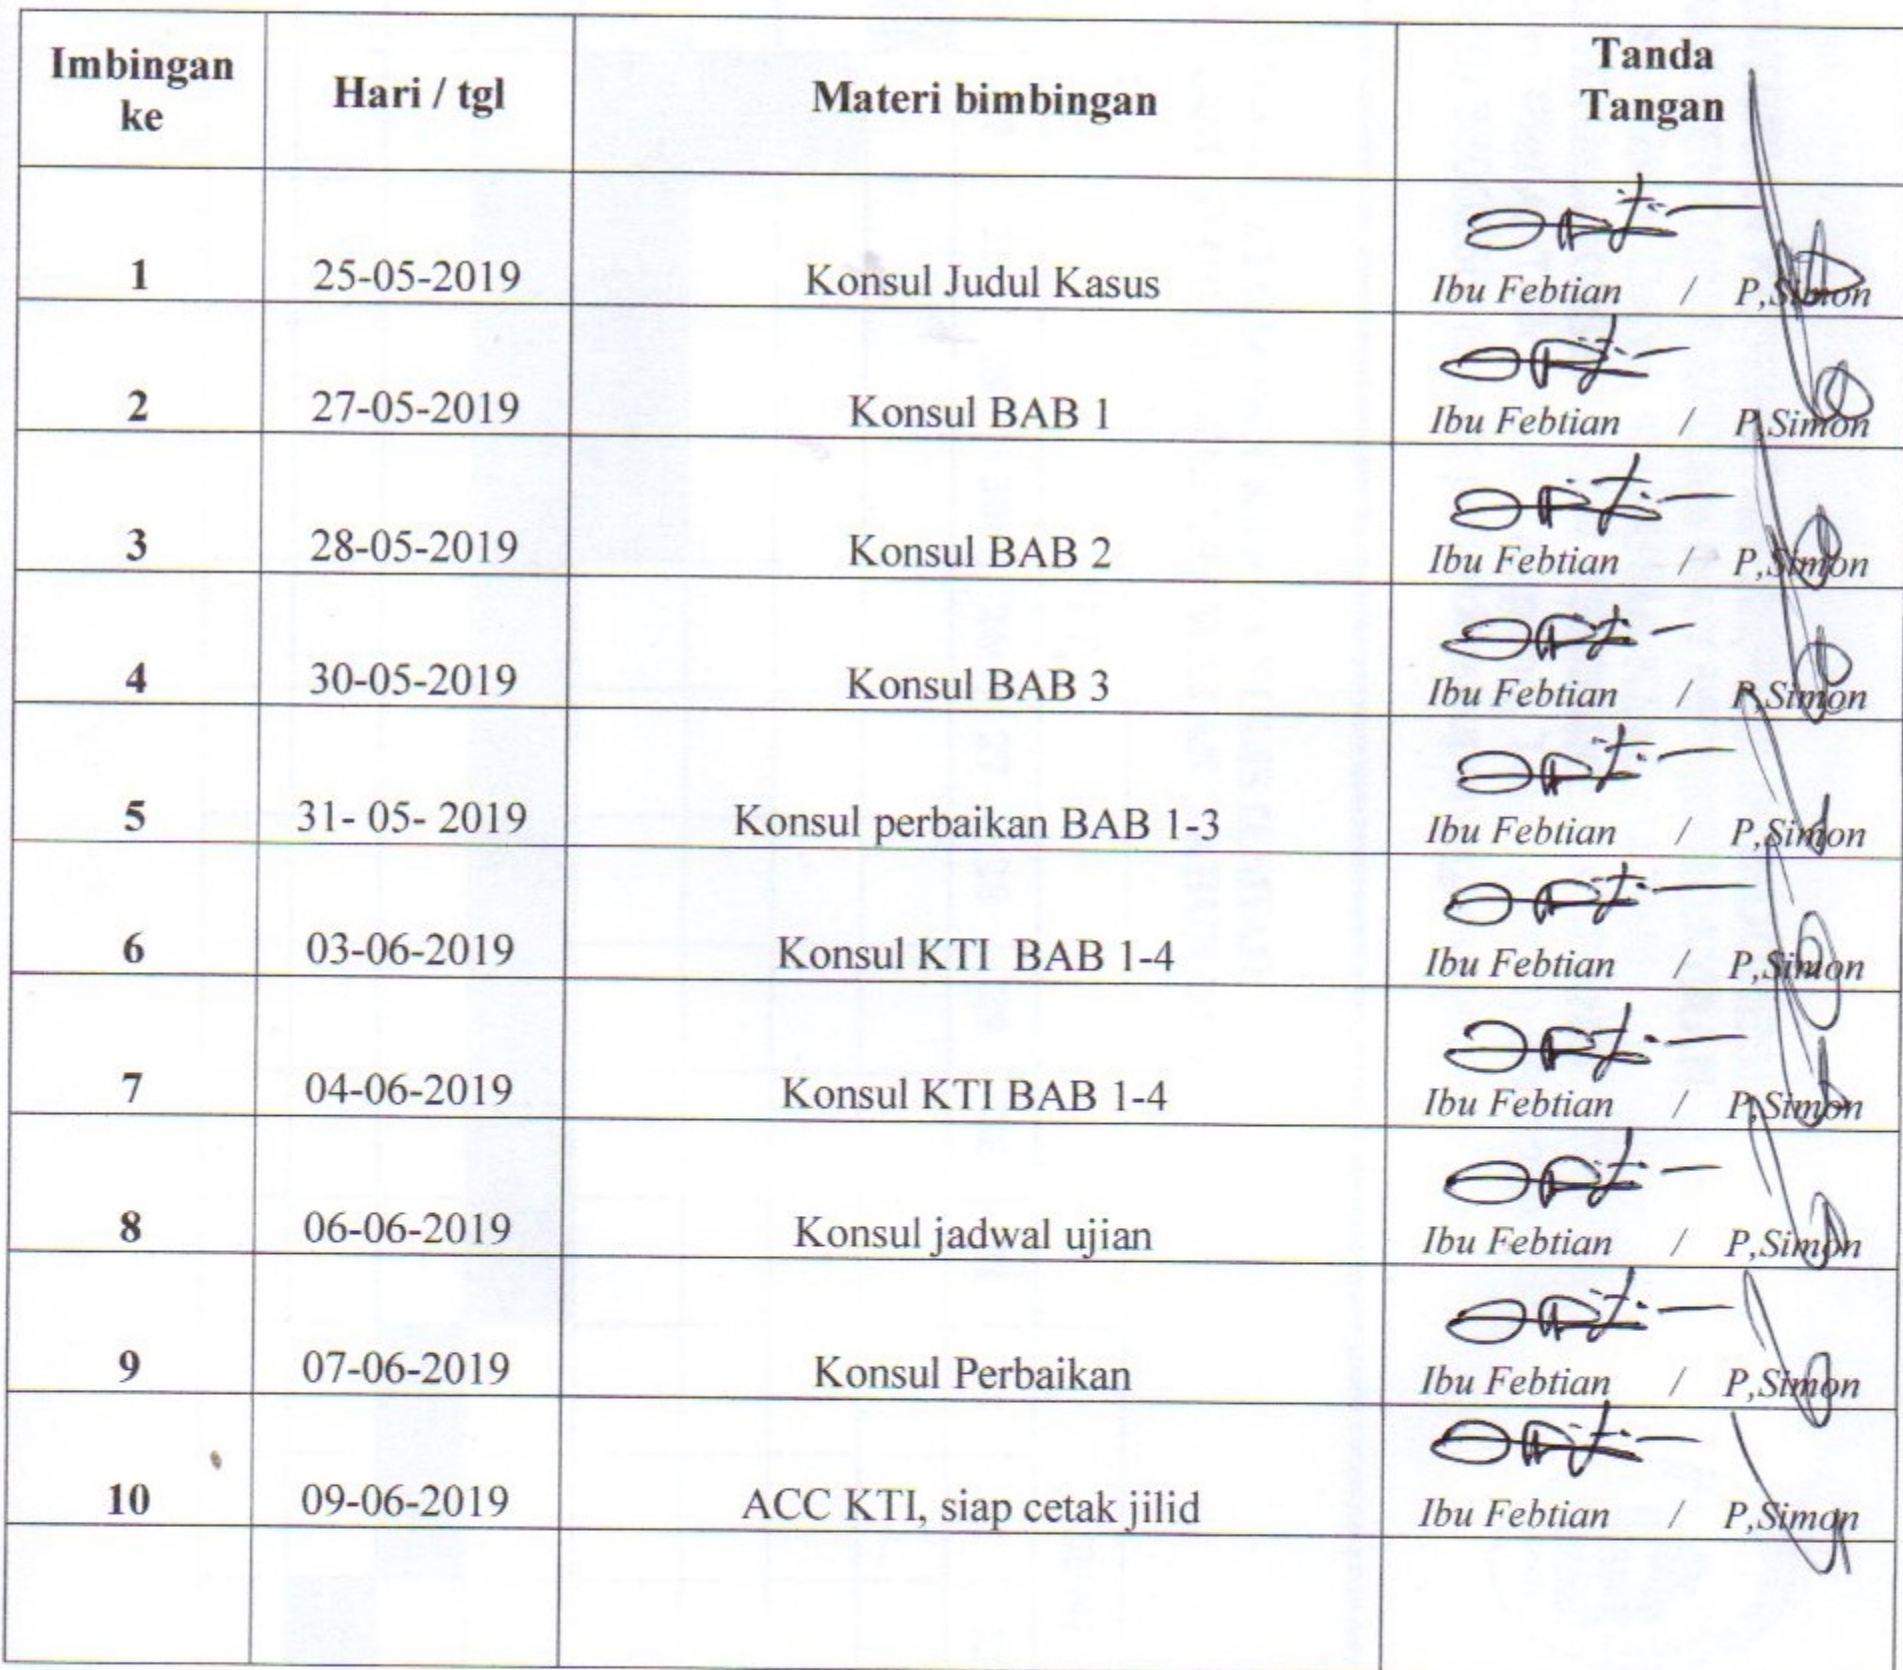 Imbingan ke Hari / tgl Materi bimbingan Tanda Tangan
1 25-05-2019 Konsul Judul Kasus Ibu Febtian / P,Simon
2 27-05-2019 Konsul BAB 1 Ibu Febtian / P,Simon
3 28-05-2019 Konsul BAB 2 Ibu Febtian / P,Simon
4 30-05-2019 Konsul BAB 3 Ibu Febtian / P,Simon
5 31- 05- 2019 Konsul perbaikan BAB 1-3 Ibu Febtian / P,Simon
6 03-06-2019 Konsul KTI  BAB 1-4 Ibu Febtian / P,Simon
7 04-06-2019 Konsul KTI BAB 1-4 Ibu Febtian / P,Simon
8 06-06-2019 Konsul jadwal ujian Ibu Febtian / P,Simon
9 07-06-2019 Konsul Perbaikan Ibu Febtian / P,Simon
10 09-06-2019 ACC KTI, siap cetak jilid Ibu Febtian / P,Simon